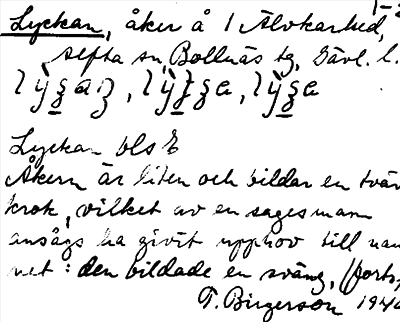 Lyckan, åker å 1 Älvkarhed,
Alfta sn, Bollnäs tg, Gävl. l.
Lyckan ols E
Åkern är liten och bildar en tvär
krok, vilket av en sagesmann
ansågs ha givit upphov till nam
net: den bildade en sväng, (forts,
T. Birgerson 1940